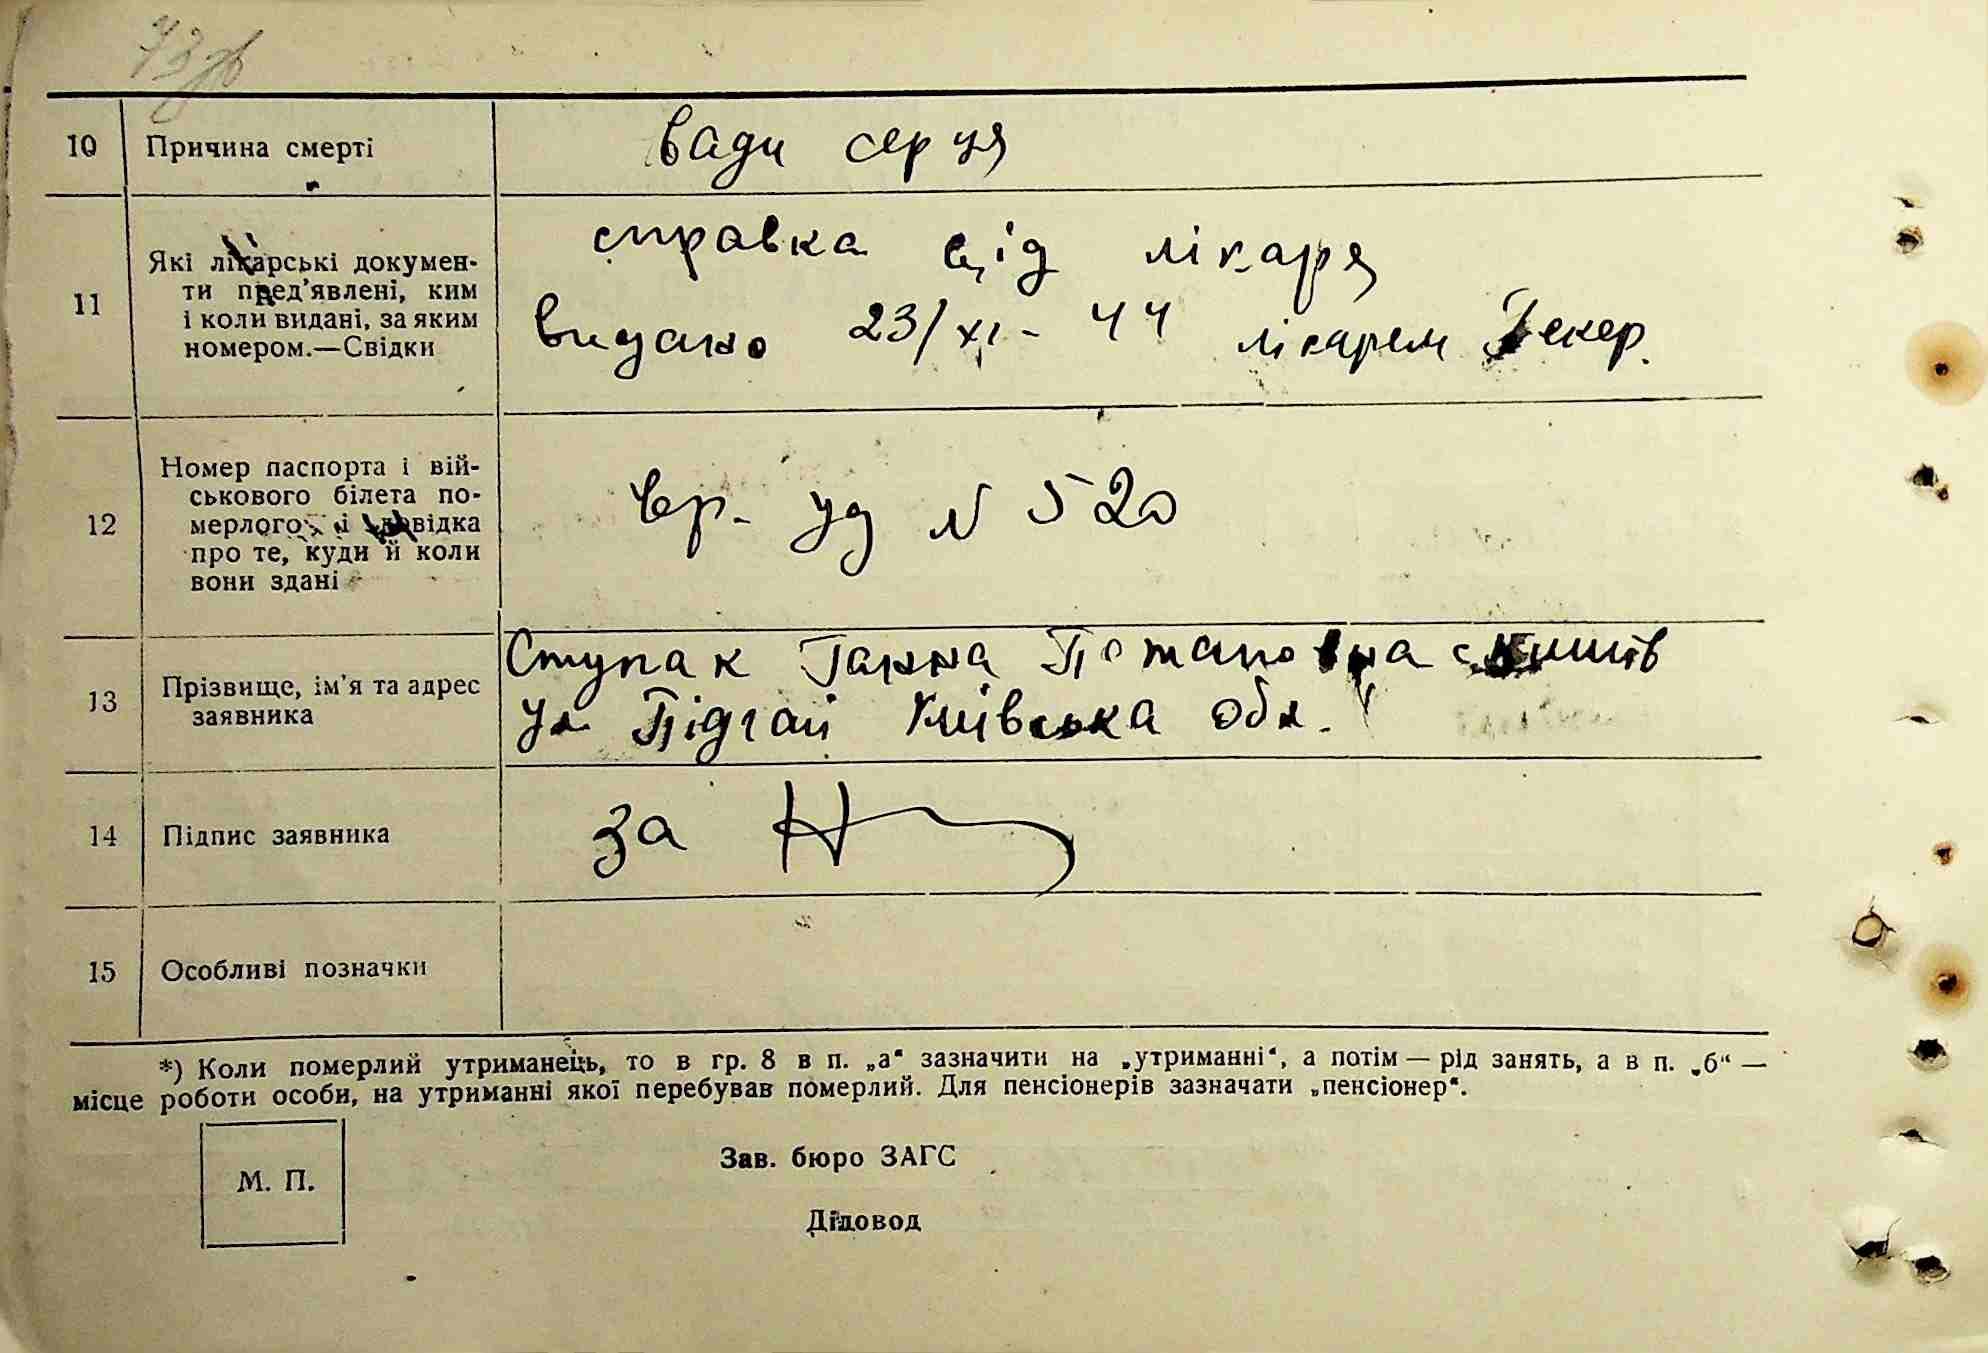 10 Причина смерті вади серця
11 Які лікарські документи пред'явлені, ким і коли видані, за яким номером.—Свідки
справка від лікаря
видано 23/XI - 44 лікарем
12 Номер паспорта і вій-
ськового білета по-
мерлого і довідка
про те, куди й коли
вони здані
вр. уд N 520
13 Прізвище, ім'я та адрес
заявника
Ступак Ганна Потаповна с
ул Підгай Київська обл.
14 Підпис заявника за
15 Особливі позначки
*) Коли померлий утриманець, то в гр. 8 в п. „а" зазначити на „утриманні", а потім — рід занять, а в п. „б" —
місце роботи особи, на утриманні якої перебував померлий. Для пенсіонерів зазначати „пенсіонер".
М. П.
Зав. бюро ЗАГС
Діловод